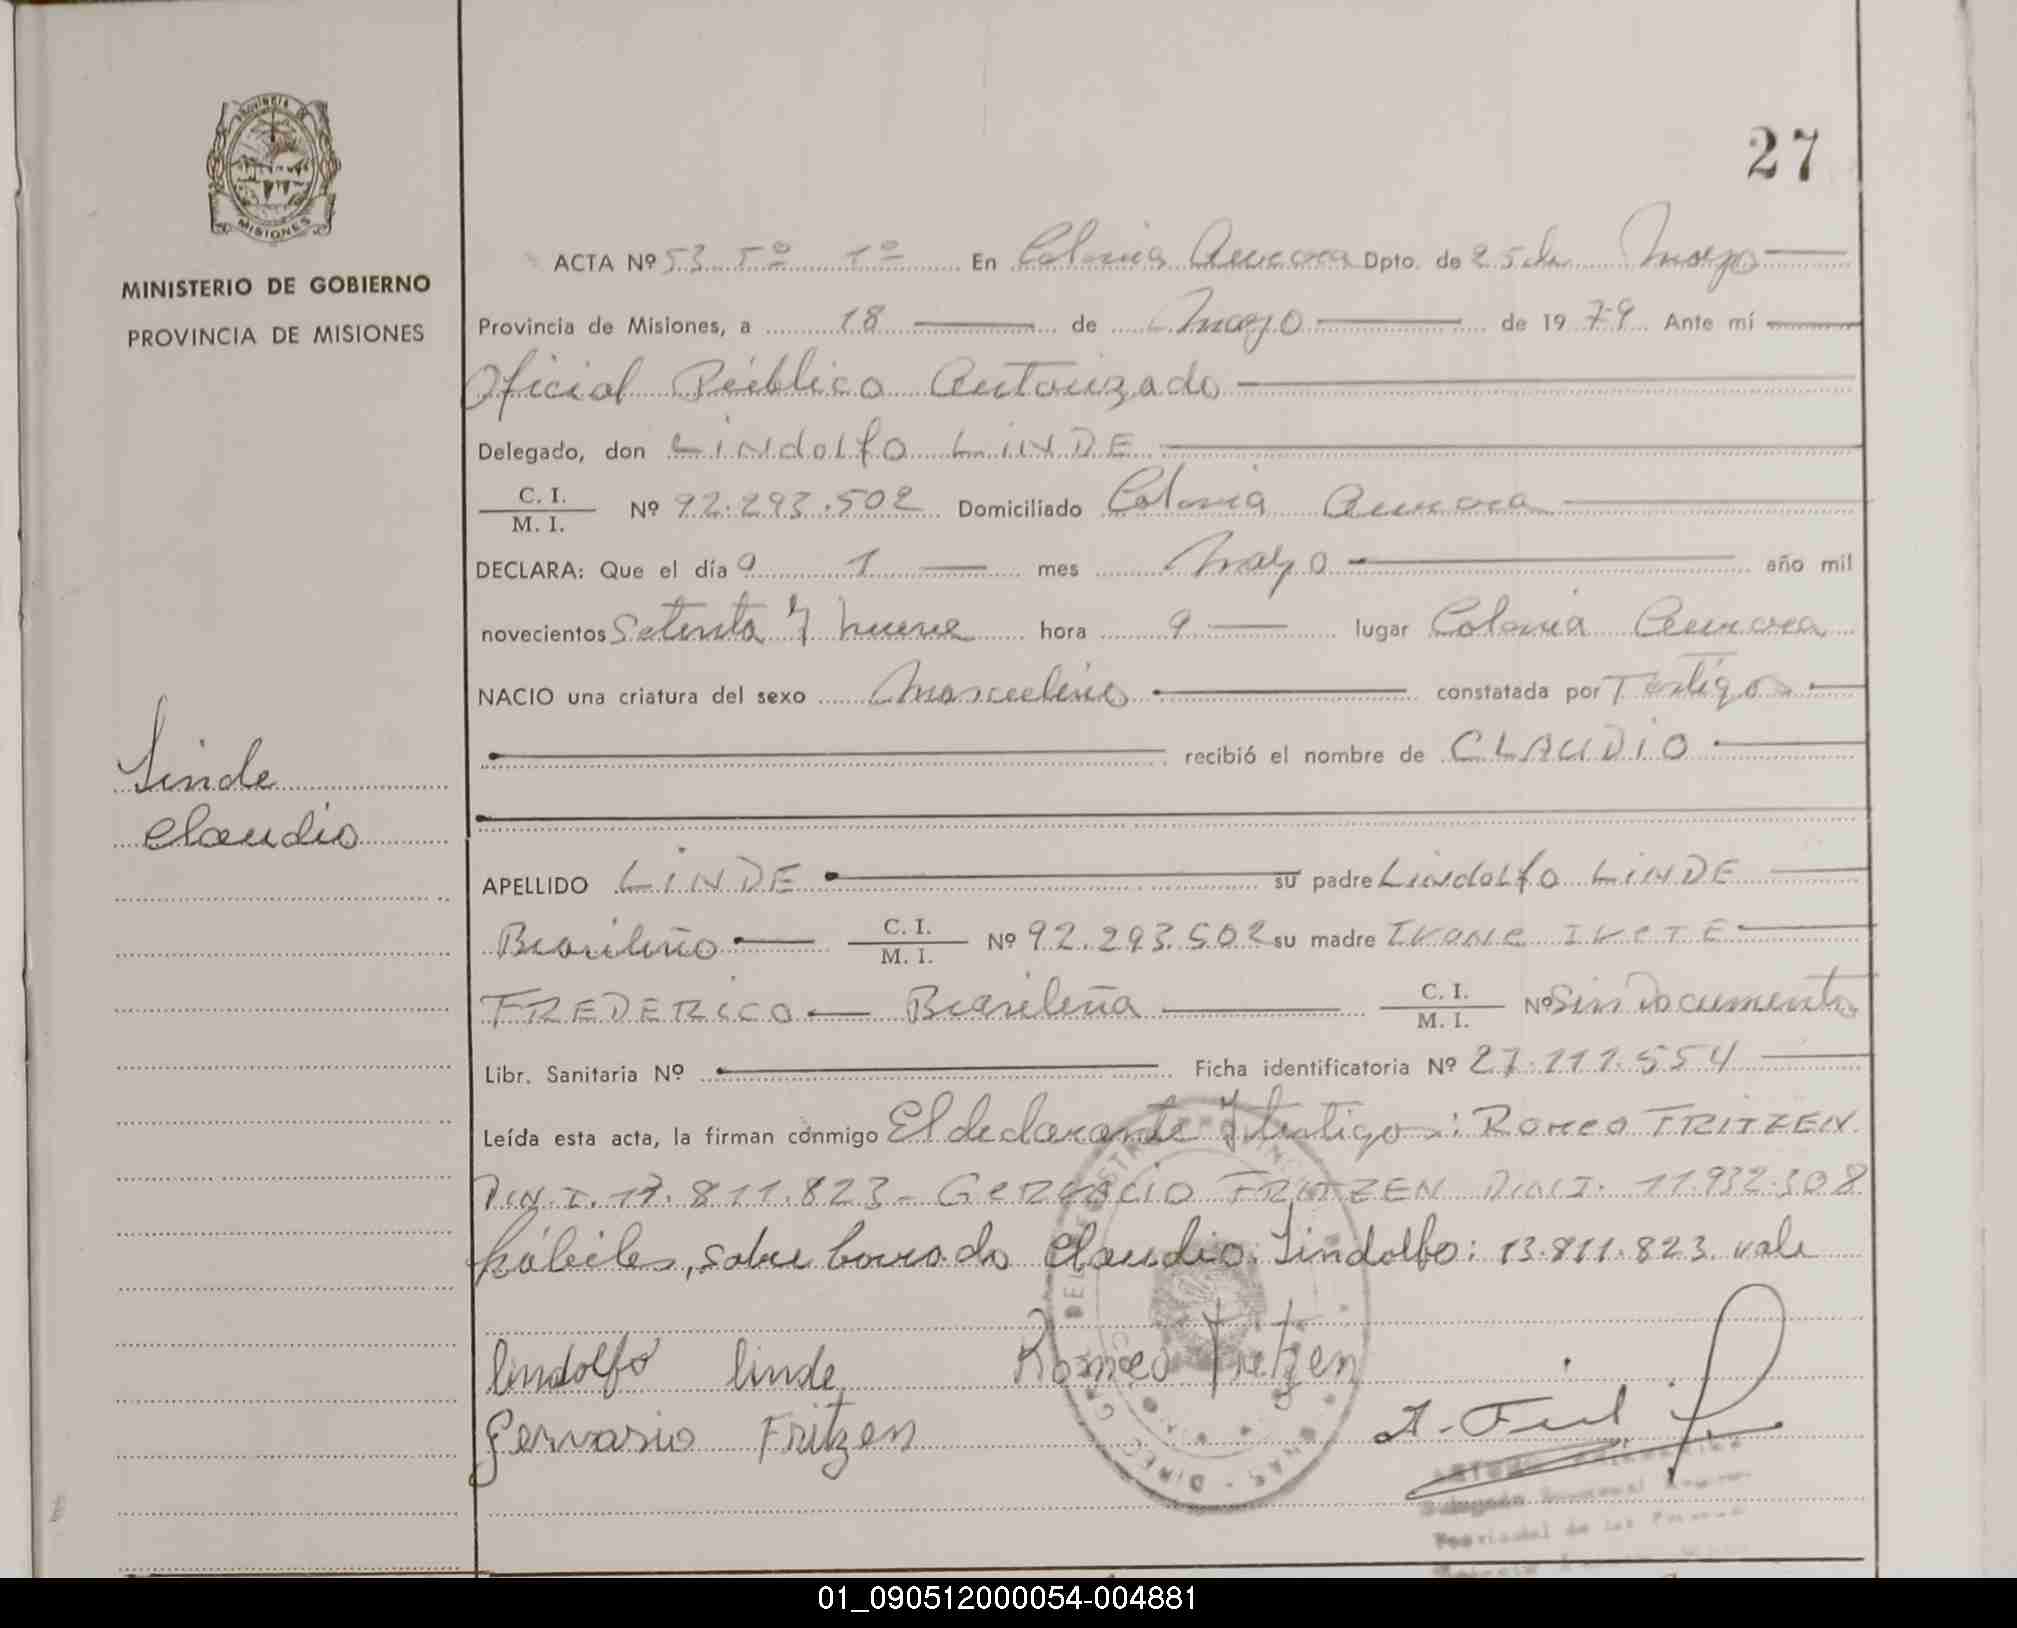 27
Provincia de
MISIONES
MINISTERIO DE GOBIERNO
PROVINCIA DE MISIONES
ACTA Nº 53 Tº 1º En Colonia Aurora Dpto. de 25 de Mayo
Provincia de Misiones, a 18 de Mayo de 1979 Ante mí
Oficial Público Autorizado
Delegado, don LiNdoLfO LiNDE
C. I.
M. I. Nº 92.293.502 Domiciliado Colonia Aurora
DECLARA: Que el día 1 mes Mayo año mil
novecientos Setenta y nueve hora 9 lugar Colonia Aurora
NACIO una criatura del sexo Masculino constatada por Testigos
recibió el nombre de CLAUDiO
Linde
Claudio
APELLIDO LiNDE su padre LiNdoLfo LiNDE
Brasileño C. I.
M. I. Nº 92.293.502 su madre IVONE IVETE
FREDERiCO Brasileña C. I.
M. I. Nº Sin Documento
Libr. Sanitaria Nº Ficha identificatoria Nº 27.111.554
Leída esta acta, la firman conmigo El declarante y testigos: ROMEO FRITZEN
D.N.I. 13.811.823 - GERVACIO FRITZEN D.N.I. 11.932.308
hábiles, sobre borrado Claudio: Lindolfo: 13.811.823 vale
lindolfo linde Romeo Fritzen
Gervasio Fritzen
Provincial de las Personas
01_090512000054-004881